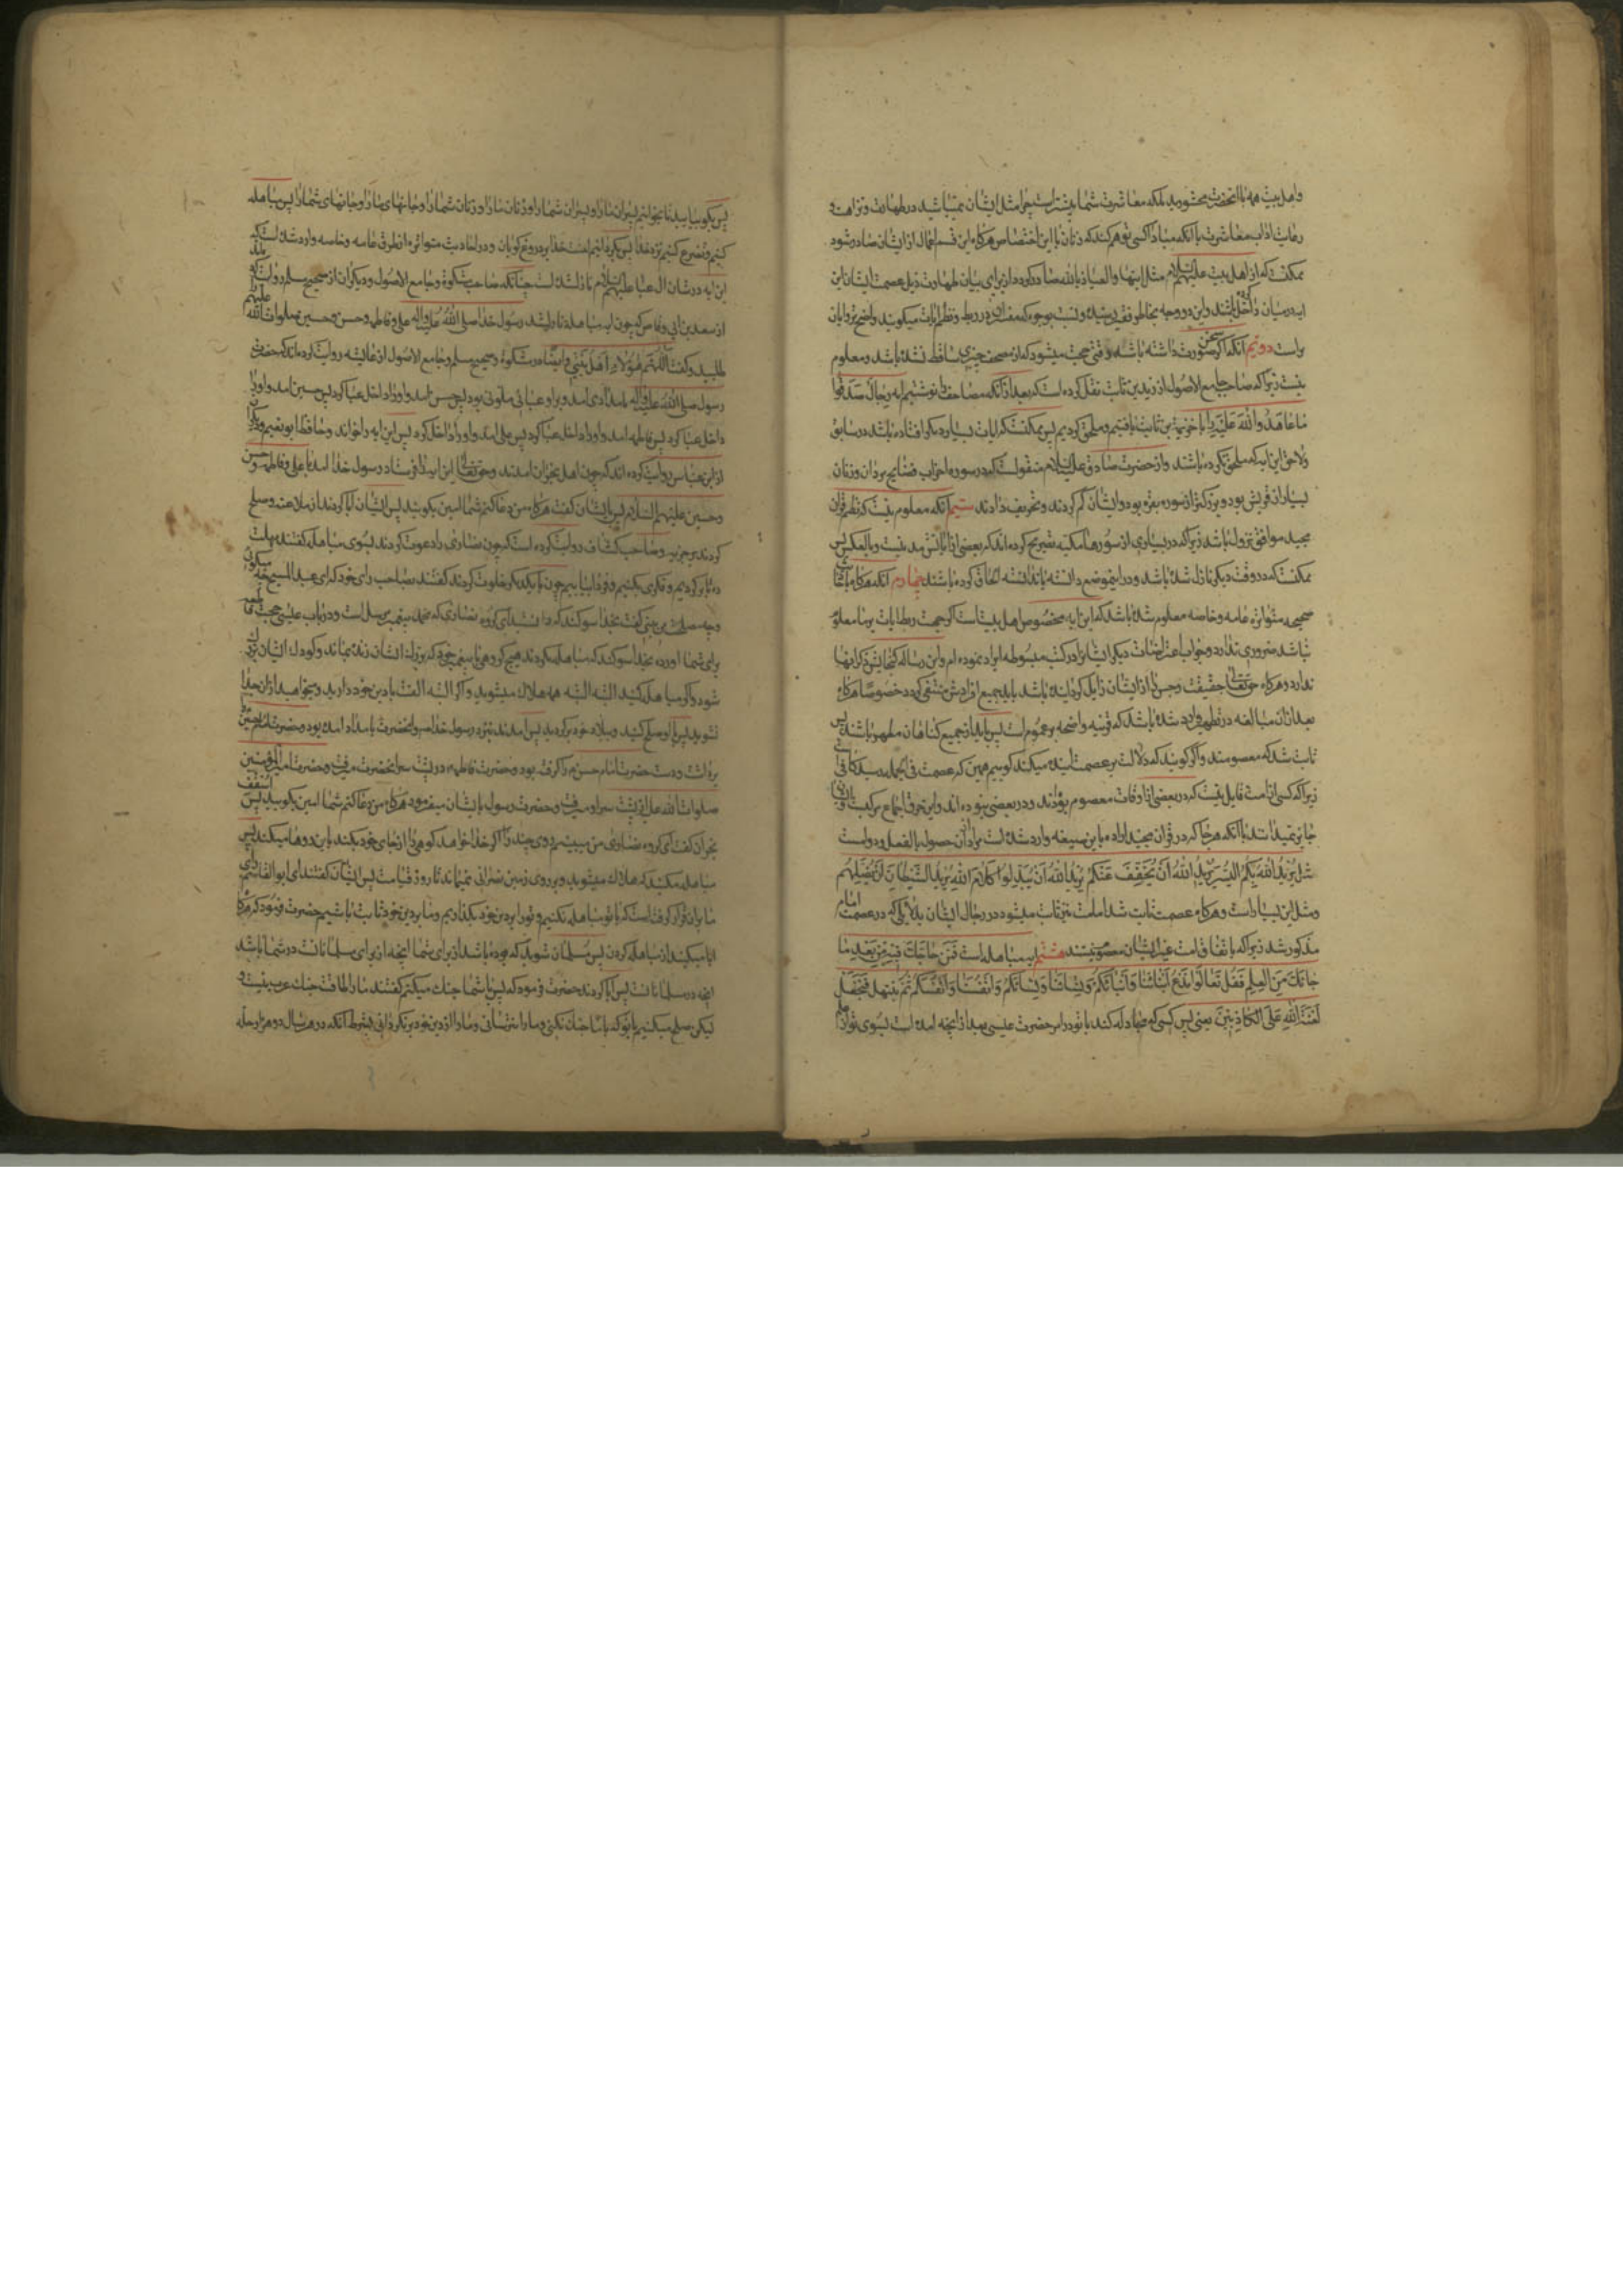 واهل بیت همه با انحضرت محشورید بلکه معاشرت شما بیشتراست چرا مثل ایشان نمیباشید در طهارت ونزاهت و
رعایت اداب معاشرت با انکه مبادا کسی توهم کند که زنان با این اختصاص هرکاه این قسم اعمال از ایشان صادر شود
ممکنست که از اهل بیت علیهم السلام مثل اینها والعیاذ بالله صادر کردد از برای بیان طهارت ذیل عصمت ایشان این
ایه درمیان داخل باشند واین دو وجه بخاطر فقیر رسیده
واست دویم انکه این سخن اکر صورت داشته باشد وقتی حجت میشود که از مصحف چیزی ساقط نشده باشد ومعلوم
نیست زیرا که صاحب جامع الاصول از زید بن ثابت نقل کرده است که بعد از انکه مصاحف را نوشتیم ایه رجال صدقوا
ما عاهدوا الله علیه را با خزیمة بن ثابت یافتیم وملحق کردیم پس ممکنست که ایات بسیار دیکر افتاده باشد در سابق
ولاحق این ایه که ملحق نکرده باشند واز حضرت صادق علیه السلام منقولست که در سوره احزاب فضایح مردان وزنان
بسیار از قریش بود وبزرکتر از سوره بقره بود ولیشان کم کردند وتحریف دادند سیم انکه معلوم نیست که نظم قران
مجید موافق نزول باشد زیرا که در بسیاری از سورها مکیه تصریح کرده اند که بعضی از ایاتش مدنیست وبالعکس پس
ممکنست که در وقت دیکر نازل شده باشد ودر اینموضع دانسته یا ندانسته الحاق کرده باشند چهارم انکه هرکاه باحادیث
صحیحه متواتره عامه وخاصه معلوم شده باشد که این ایه مخصوص اهل بیت است اکر جهت ربط ایات بر ما معلوم
نباشد ضروری ندارد وجواب اعتراضات دیکر ایشانرا در کتب مبسوطه ایراد نموده ام واین رساله کنجایش ذکر انها
ندارد وهرکاه حق تعالی حقیقت رجس را از ایشان زایل کردانیده باشد باید جمیع افرادش منتفی کردد خصوصا هرکاه
بعد ازان مبالغه در تطهیر وارد شده باشد که قرینه واضحه بر عموم است پس باید از جمیع کناهان مطهر باشند پس
ثابت شد که معصومند واکر کویند که دلالت بر عصمت ایشان میکند کوییم همین که عصمت فی الجمله رسید کافی است
زیرا که کسی از امت قایل نیست که در بعضی از اوقات معصوم بودند ودر بعضی نبوده اند واین خرق اجماع مرکبست
جایز نمیدانند با انکه هرجا که در قران مجید اراده باین صیغه وارد شده است مراد از ان حصول بالفعل ودوامست
مثل یرید الله بکم الیسر یرید الله ان یخفف عنکم یریدالله ان یبدلوا کلام الله یرید الشیطان ان یضلهم
ومثل این بسیار است وهرکاه عصمت ثابت شد امامت نیز ثابت میشود در رجال ایشان بدلایلی که در عصمت امام
مذکور شد زیرا که باتفاق امت غیر ایشان معصوم نیستند هشتم ایه مباهله است فمن حاجك فیه من بعد ما
جائك من العلم فقل تعالوا ندع ابنائنا وابنائکم ونسائنا ونسائکم وانفسنا وانفسکم ثم نبتهل فنجعل
لعنة الله علی الکاذبین یعنی پس کسی که مجادله کند با تو در امر حضرت عیسی بعد از انچه امده است بسوی تو از علم
پس بکو بیایید تا بخوانیم پسران ما را وپسران شما را وزنان ما را وزنان شما را وجانهای ما را وجانهای شما را پس مباهله
کنیم وتضرع کنیم نزد خدا پس بکردانیم لعنت خدا بر دروغ کویان ودر احادیث متواتره از طرق عامه وخاصه وارد شده است که
این ایه در شان ال عبا علیهم السلام نازل شده است چنانکه صاحب مشکوة وجامع الاصول ودیکران از صحیح مسلم روایت کرده اند
از سعد بن ابی وقاص که چون ایه مباهله نازل شد رسول خدا صلی الله علیه واله علی وفاطمه وحسن وحسین صلوات الله علیهم
طلبید وکفت اللهم هؤلاء اهل بیتی وایضا در مشکوة وصحیح مسلم وجامع الاصول از عایشه روایت کرده اند که حضرت
رسول صلی الله علیه واله بامدادی امد وبر او عبائی ملونی بود پس حسن امد واو را داخل عبا کرد پس حسین امد واورا
داخل عبا کرد پس فاطمه امد واورا داخل عبا کرد پس علی امد واورا داخل کرد پس این ایه را خواند وحافظ ابو نعیم ودیکران
از ابن عباس روایت کرده اند که چون اهل نجران امدند وحق تعالی این ایه را فرستاد رسول خدا امد با علی وفاطمه وحسن
وحسین علیهم السلام پس بایشان کفت هرکاه من دعا کنم شما امین بکویید پس ایشان ابا کردند از ملاعنه وصلح
کردند بر جزیه وصاحب کشاف روایت کرده است که چون نصاری را دعوت کردند بسوی مباهله کفتند مهلت
ده تا برکردیم وفکری بکنیم وفردا بیاییم چون با یکدیکر خلوت کردند کفتند بصاحب رای خود که ای عبد المسیح چه میکوئی
وچه مصلحت می بینی کفت بخدا سوکند که دانسته اید ای کروه نصاری که محمد پیغمبر مرسل است ودر باب عیسی حجت قاطع
برای شما اورده بخدا سوکند که مباهله نکردند هیچ کروهی با پیغمبر خود که بزرك ایشان زنده بماند وکودك ایشان بزرك
شود واکر مباهله کنید البته البته همه هلاك میشوید واکر البته الفت با دین خود دارید ومیخواهید ازان جدا
نشوید پس با او صلح کنید وببلاد خود برکردید پس امدند بنزد رسول خدا ص وانحضرت بامداد امده بود وحضرت امام حسین
بر داشته ودست حضرت امام حسن را کرفته بود وحضرت فاطمه در پشت سر انحضرت میرفت وحضرت امیرالمؤمنین
صلوات الله علیه از پشت سر او میرفت وحضرت رسول بایشان میفرمود هرکاه من دعا کنم شما امین بکویید پس اسقف
نجران کفت ای کروه نصاری من می بینم روی چند را که اکر خدا خواهد کوهی را از جای خود بکند باین روها میکند پس
مباهله مکنید که هلاك میشوید وبر روی زمین نصرانی نمیماند تا روز قیامت پس ایشان کفتند ای ابوالقاسم رای
ما بر ان قرار کرفته است که با تو مباهله نکنیم وتو را بر دین خود بکذاریم وما بر دین خود ثابت باشیم حضرت فرمود که هرکاه
ابا میکنید از مباهله کردن پس مسلمان شوید که بوده باشد از برای شما انچه از برای مسلمانانست در شما باشد
انچه در مسلمانانست پس ابا کردند حضرت فرمود که پس با شما جنك میکنم کفتند ما را طاقت جنك عرب نیست و
لیکن صلح میکنیم با تو که با ما جنك نکنی وما را نترسانی وما را از دین خود برنکردانی بشرط انکه در هر سال دو هزار حله